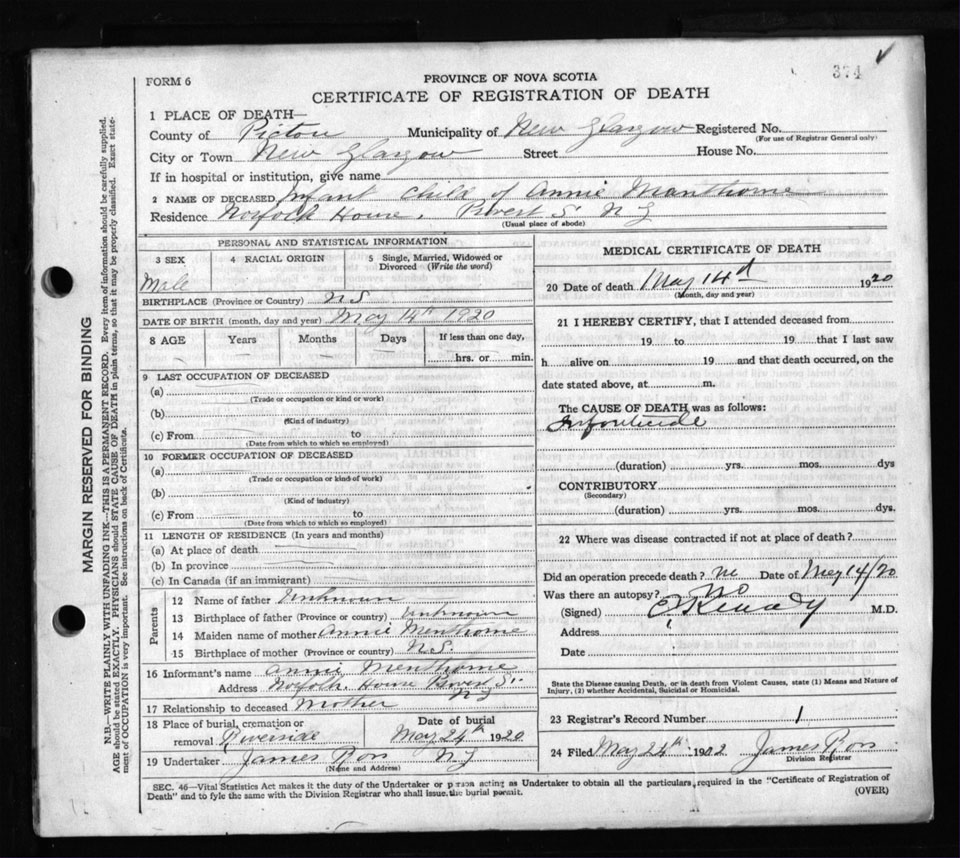 374
FORM 6
PROVINCE OF NOVA SCOTIA
CERTIFICATE OF REGISTRATION OF DEATH
1 PLACE OF DEATH—
County of Pictou Municipality of New Glasgow Registered No.
(For use of Registrar General only)
City or Town New Glasgow Street House No.
If in hospital or institution, give name
2 NAME OF DECEASED Infant child of Annie Manthorne
Residence Norfolk House. Provost S. N G
(Usual place of abode)
PERSONAL AND STATISTICAL INFORMATION
3 SEX 4 RACIAL ORIGIN 5 Single, Married, Widowed or Divorced (Write the word)
Male
BIRTHPLACE (Province or Country) N.S
DATE OF BIRTH (month, day and year) May 14th 1920
8 AGE Years Months Days If less than one day,
hrs. or min.
9 LAST OCCUPATION OF DECEASED
(a)
(Trade or occupation or kind or work)
(b)
(Kind of industry)
(c) From to
(Date from which to which so employed)
10 FORMER OCCUPATION OF DECEASED
(a)
(Trade or occupation or kind of work)
(b)
(Kind of industry)
(c) From to
(Date from which to which so employed)
11 LENGTH OF RESIDENCE (In years and months)
(a) At place of death
(b) In province
(c) In Canada (if an immigrant)
Parents
12 Name of father Unknown
13 Birthplace of father (Province or country) Unknown
14 Maiden name of mother Annie Menthorne
15 Birthplace of mother (Province or country) N.S.
16 Informant's name Annie Menthorne
Address Norfolk House Provost St.
N G
17 Relationship to deceased Mother
18 Place of burial, cremation or removal Riverside
Date of burial
May 24th 1920
19 Undertaker James Ross N G
(Name and Address)
MEDICAL CERTIFICATE OF DEATH
20 Date of death May 14d 1920
(Month, day and year)
21 I HEREBY CERTIFY, that I attended deceased from
19 to 19 that I last saw
h alive on 19 and that death occurred, on the
date stated above, at m.
The CAUSE OF DEATH was as follows:
Infanticide
(duration) yrs. mos. dys
CONTRIBUTORY
(Secondary)
(duration) yrs. mos. dys.
22 Where was disease contracted if not at place of death?
Did an operation precede death? no Date of May 14/20
Was there an autopsy? No
(Signed) Kennedy M.D.
Address
Date
State the Disease causing Death, or in death from Violent Causes, state (1) Means and Nature of
Injury, (2) whether Accidental, Suicidal or Homicidal.
23 Registrar's Record Number 1
24 Filed May 24th 1902 James Ross
Division Registrar
SEC. 46—Vital Statistics Act makes it the duty of the Undertaker or person acting as Undertaker to obtain all the particulars, required in the "Certificate of Registration of
Death" and to fyle the same with the Division Registrar who shall issue the burial permit. (OVER)
MARGIN RESERVED FOR BINDING
N.B.—WRITE PLAINLY WITH UNFADING INK—THIS IS A PERMANENT RECORD. Every item of information should be carefully supplied.
AGE should be stated EXACTLY. PHYSICIANS should STATE CAUSE OF DEATH in plain terms, so that it may be properly classified. Exact state-
ment of OCCUPATION is very important. See instructions on back of Certificate.